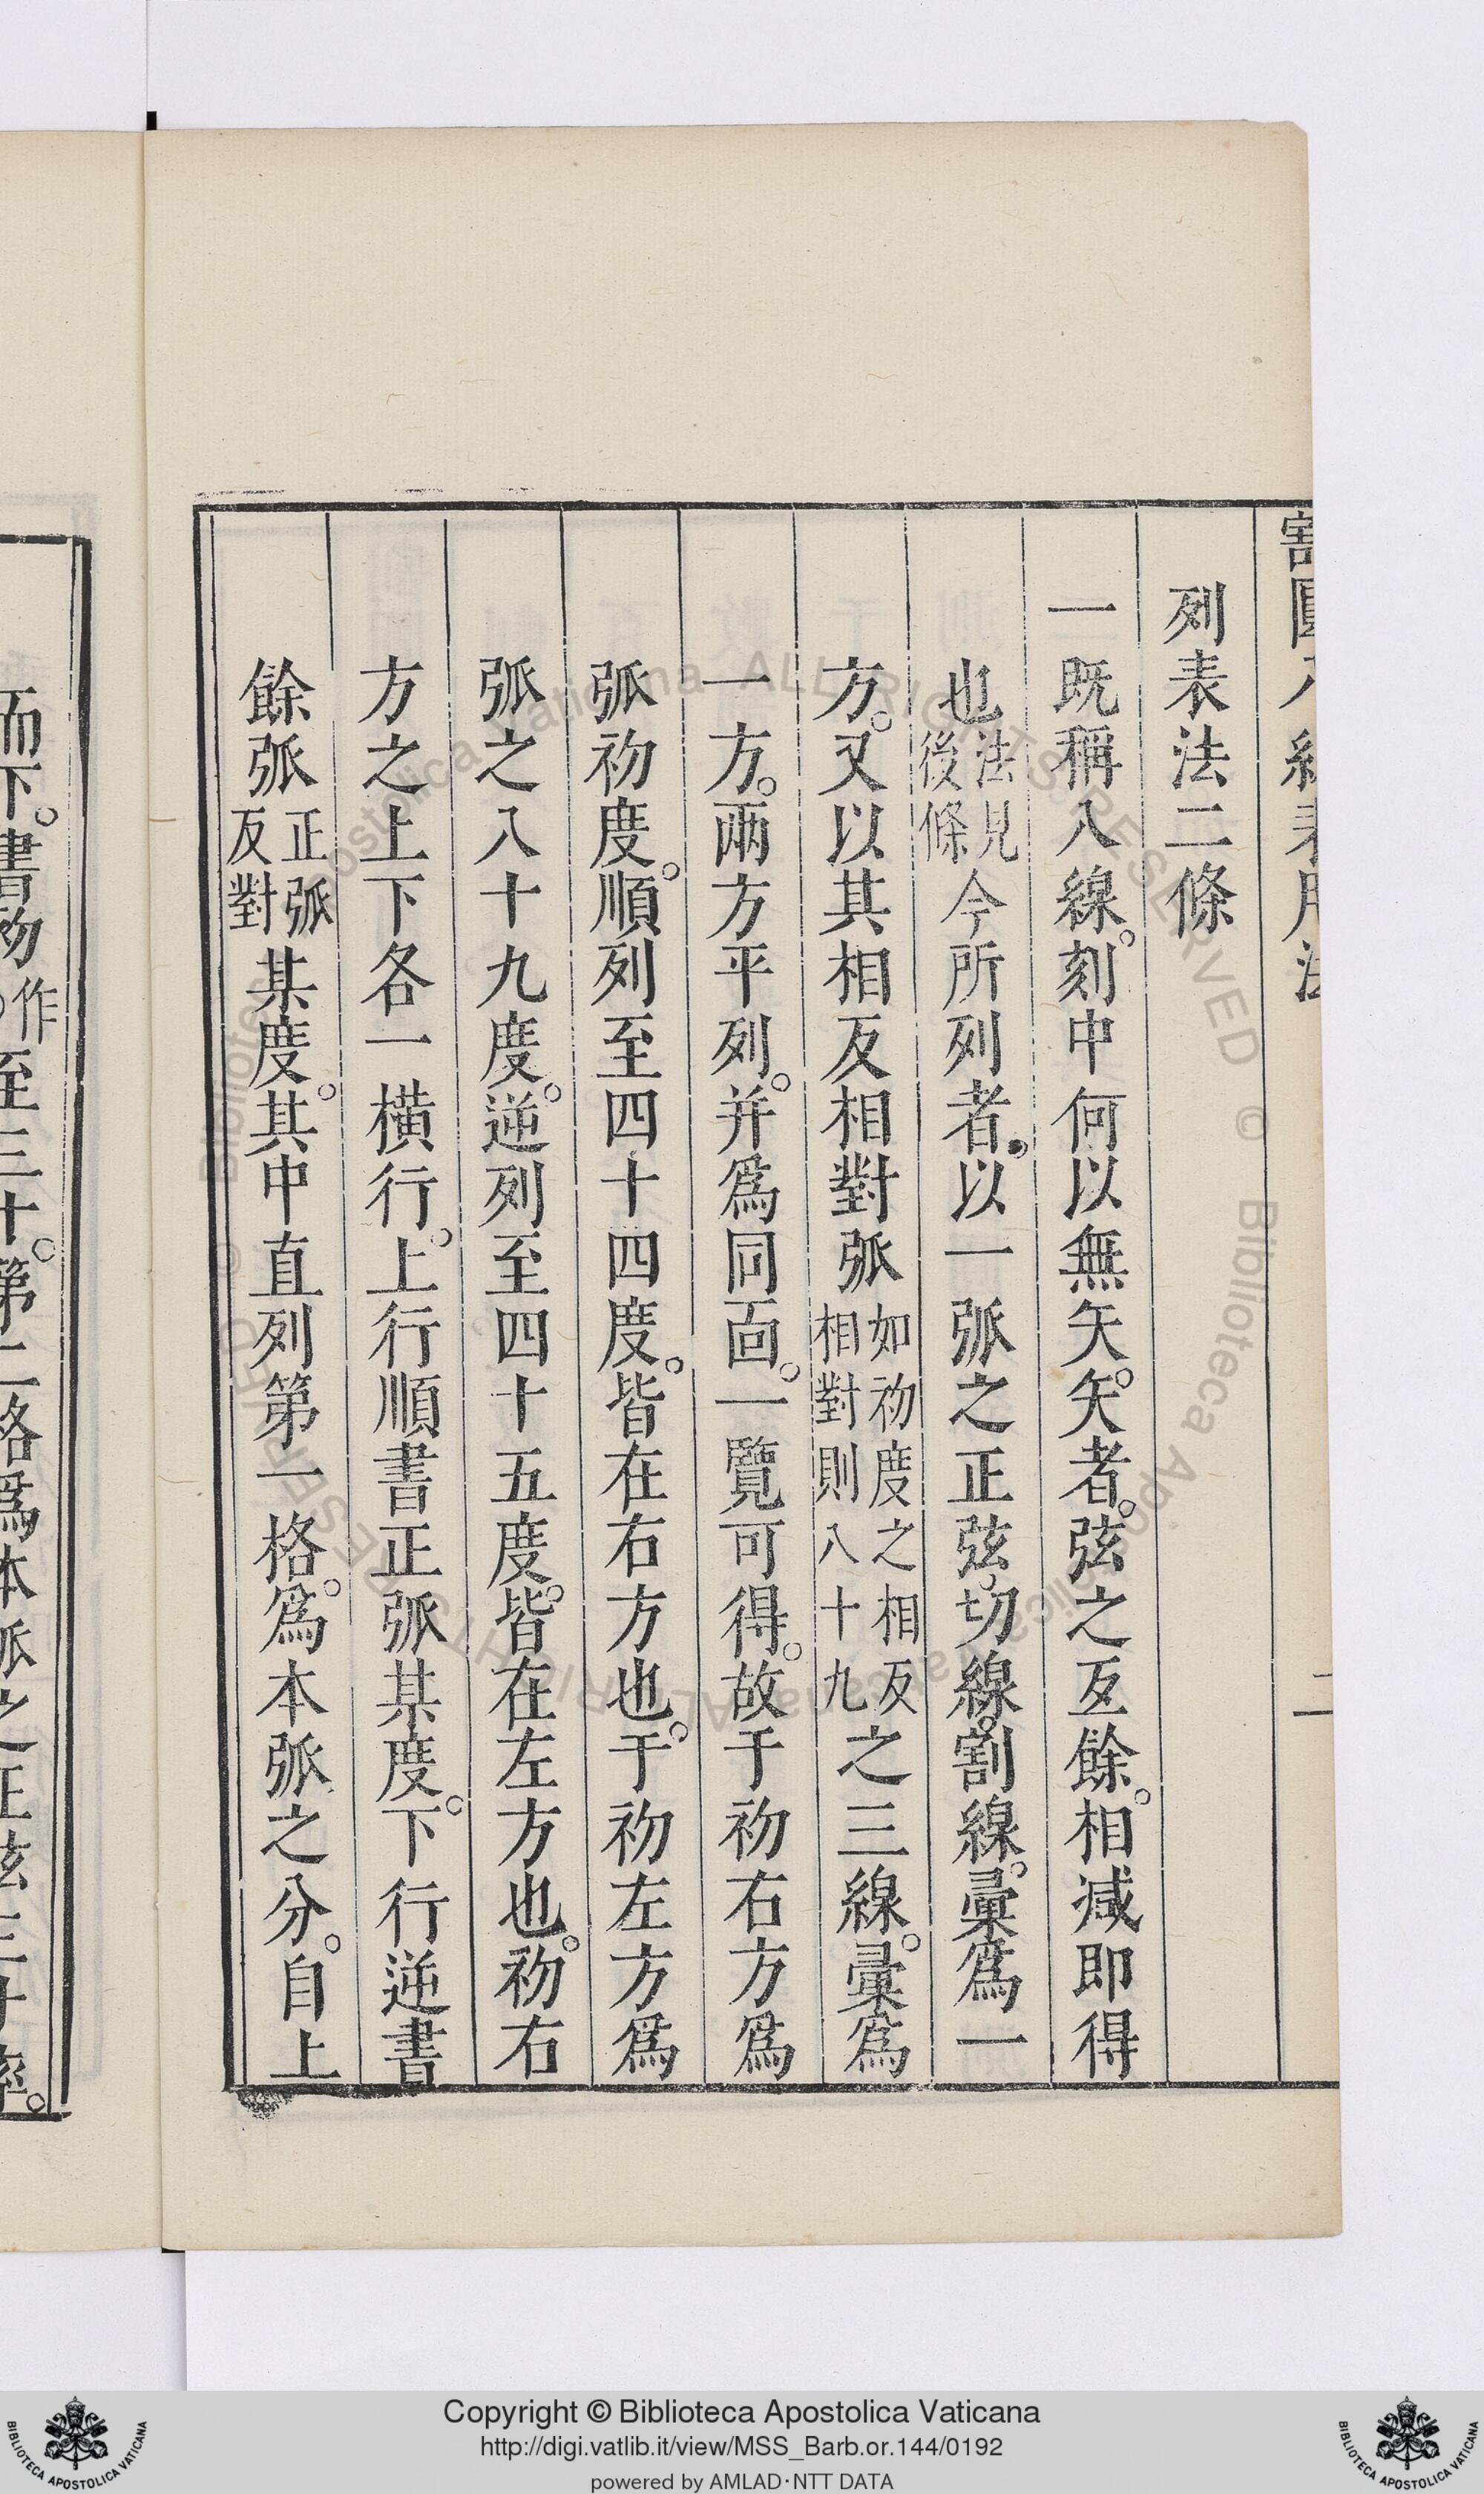 割圓八線表用法
二
列表法二條
一既稱八線。刻中何以無矢。矢者。弦之互餘。相减即得
也法見後條今所列者。以一弧之正弦。切線。割線。彚爲一
方。又以其相反相對弧如初度之相反相對則八十九之三線。彚爲
一方。兩方平列。并爲同靣。一覽可得。故于初右方爲
弧初度。順列至四十四度。皆在右方也。于初左方爲
弧之八十九度。逆列至四十五度。皆在左方也。初右
方之上下各一橫行。上行順書正弧某度。下行逆書
餘弧正弧反對某度。其中直列第一格。爲本弧之分。自上
而下。書初作至三十。第二格爲本弧之正弦三千率。
Copyright © Biblioteca Apostolica Vaticana
http://digi.vatlib.it/view/MSS_Barb.or.144/0192
powered by AMLAD·NTT DATA
BIBLIOTECA APOSTOLICA VATICANA
BIBLIOTECA APOSTOLICA VATICANA